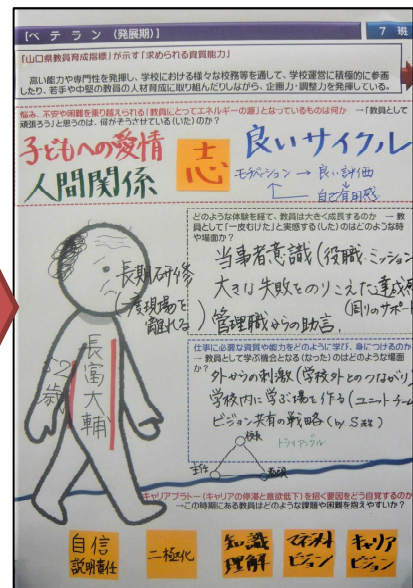 [ベテラン(発展期)]
7 班
「山口県教員育成指標」が示す「求められる資質能力」
高い能力や専門性を発揮し、学校における様々な校務等を通して、学校運営に積極的に参画
したり、若手や中堅の教員の人材育成に取り組んだりしながら、企画力・調整力を発揮している。
悩み、不安や困難を乗り越えられる「教員にとってエネルギーの源」となっているものは何か →「教員として
頑張ろう」と思うのは、何がそうさせている(いた)のか?
子どもへの愛情
人間関係
志
良いサイクル
モチベーション → 良い評価
自己有用感
どのような体験を経て、教員は大きく成長するのか → 教
員として「一皮むけた」と実感する(した)のはどのような時
や場面か?
当事者意識(役職・ミッション
大きな失敗をのりこえた達成感
(周りのサポート
管理職からの助言、
長期研修
(一度現場を
離れる)
長富大輔
52歳
仕事に必要な資質や能力をどのように学び、身につけるのか
→ 教員として学ぶ機会となる(なった)のはどのような場面
か?
外からの刺激(学校外とのつながり)
学校内に学ぶ場を作る(ユニットチーム
ビジョン共有の戦略(by S教)
校長
トライアングル
主任
教頭
キャリアプラトー(キャリアの停滞と意欲低下)を招く要因をどう自覚するのか
→この時期にある教員はどのような課題や困難を抱えやすいか?
自信
説明責任
二極化
知識
理解
マネジメント
ビジョン
キャリア
ビジョン